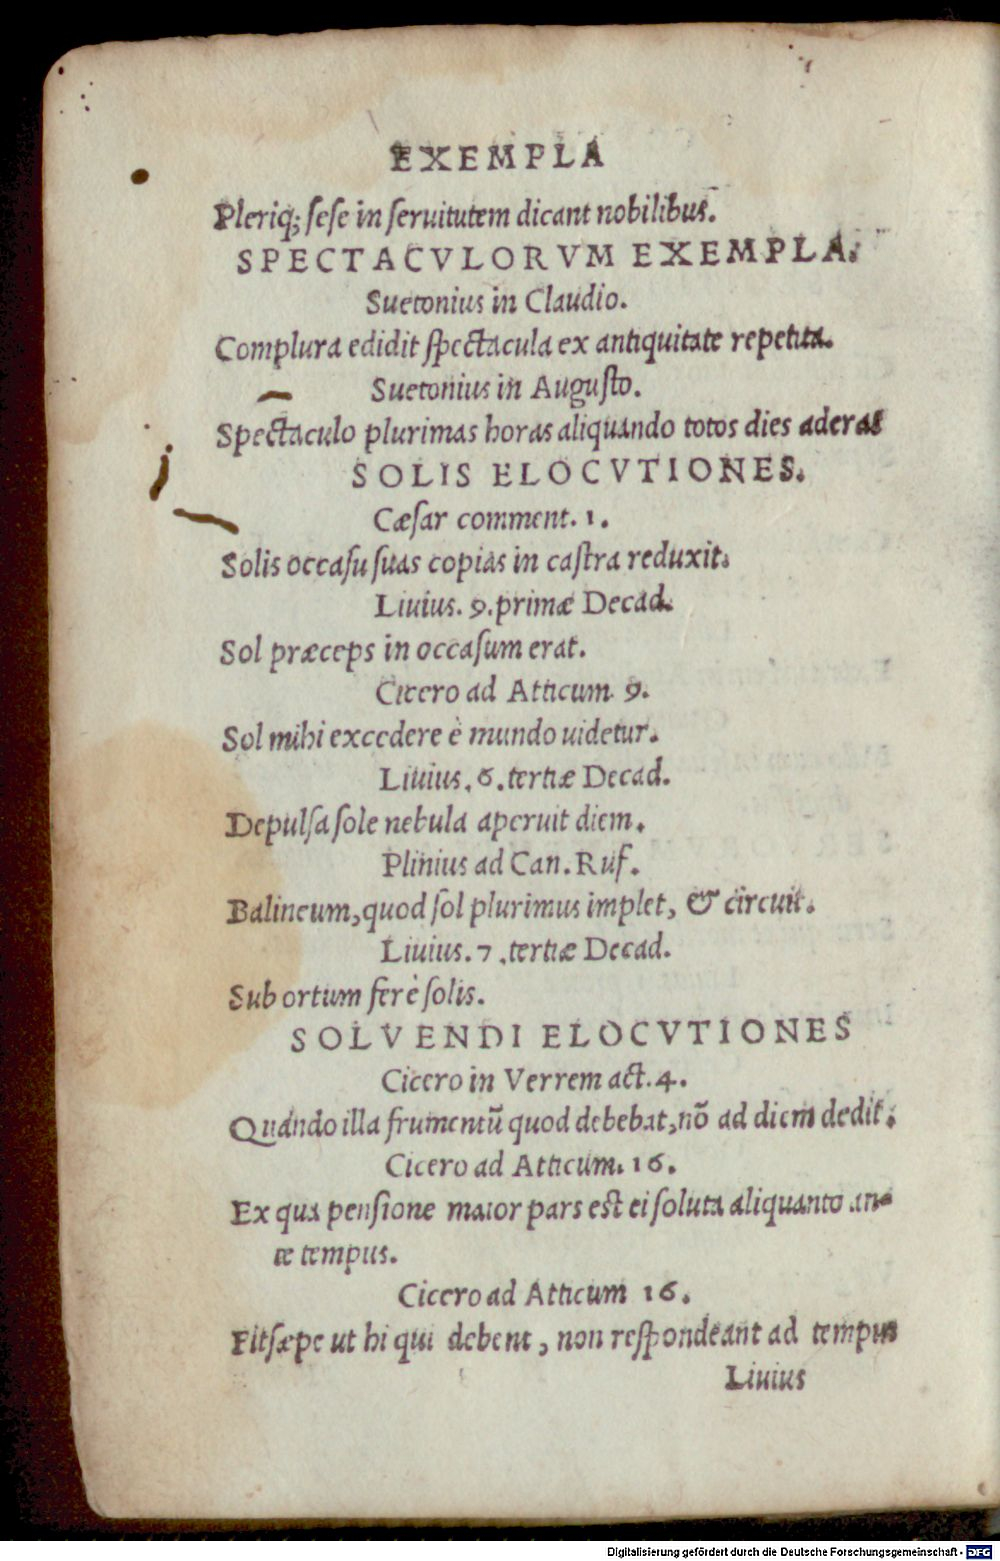 EXEMPLA
Pleriq; sese in seruitutem dicant nobilibus.
SPECTACVLORVM EXEMPLA.
Suetonius in Claudio.
Complura edidit spectacula ex antiquitate repetita.
Suetonius in Augusto.
Spectaculo plurimas horas aliquando totos dies aderat
SOLIS ELOCVTIONES.
Cæsar comment. 1.
Solis occasu suas copias in castra reduxit.
Liuius. 9. primæ Decad.
Sol præceps in occasum erat.
Cicero ad Atticum 9.
Sol mihi excedere è mundo uidetur.
Liuius. 6. tertiæ Decad.
Depulsa sole nebula aperuit diem.
Plinius ad Can. Ruf.
Balineum, quod sol plurimus implet, & circuit.
Liuius. 7. tertiæ Decad.
Sub ortum ferè solis.
SOLVENDI ELOCVTIONES
Cicero in Verrem act. 4.
Quando illa frumentũ quod debebat, nõ ad diem dedit.
Cicero ad Atticum. 16.
Ex qua pensione maior pars est ei soluta aliquanto an-
te tempus.
Cicero ad Atticum 16.
Fit sæpe ut hi qui debent, non respondeant ad tempus
Liuius
Digitalisierung gefördert durch die Deutsche Forschungsgemeinschaft - DFG